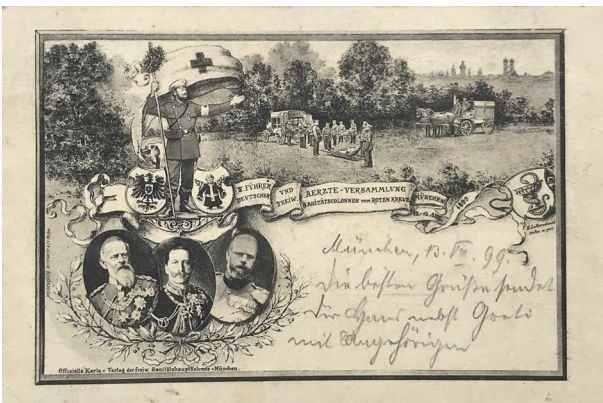 V. FÜHRER UND AERZTE-VERSAMMLUNG
DEUTSCHER FREIW. SANITÄTSCOLONNEN VOM ROTEN KREUZ
MÜNCHEN
12.-15. AUG. 1899
München, 13. VIII. 99.
Die besten Grüße sendet
Dir Hans nebst Greti
mit Angehörigen
Officielle Karte - Verlag der freiw. Sanitätshauptkolonne - München.